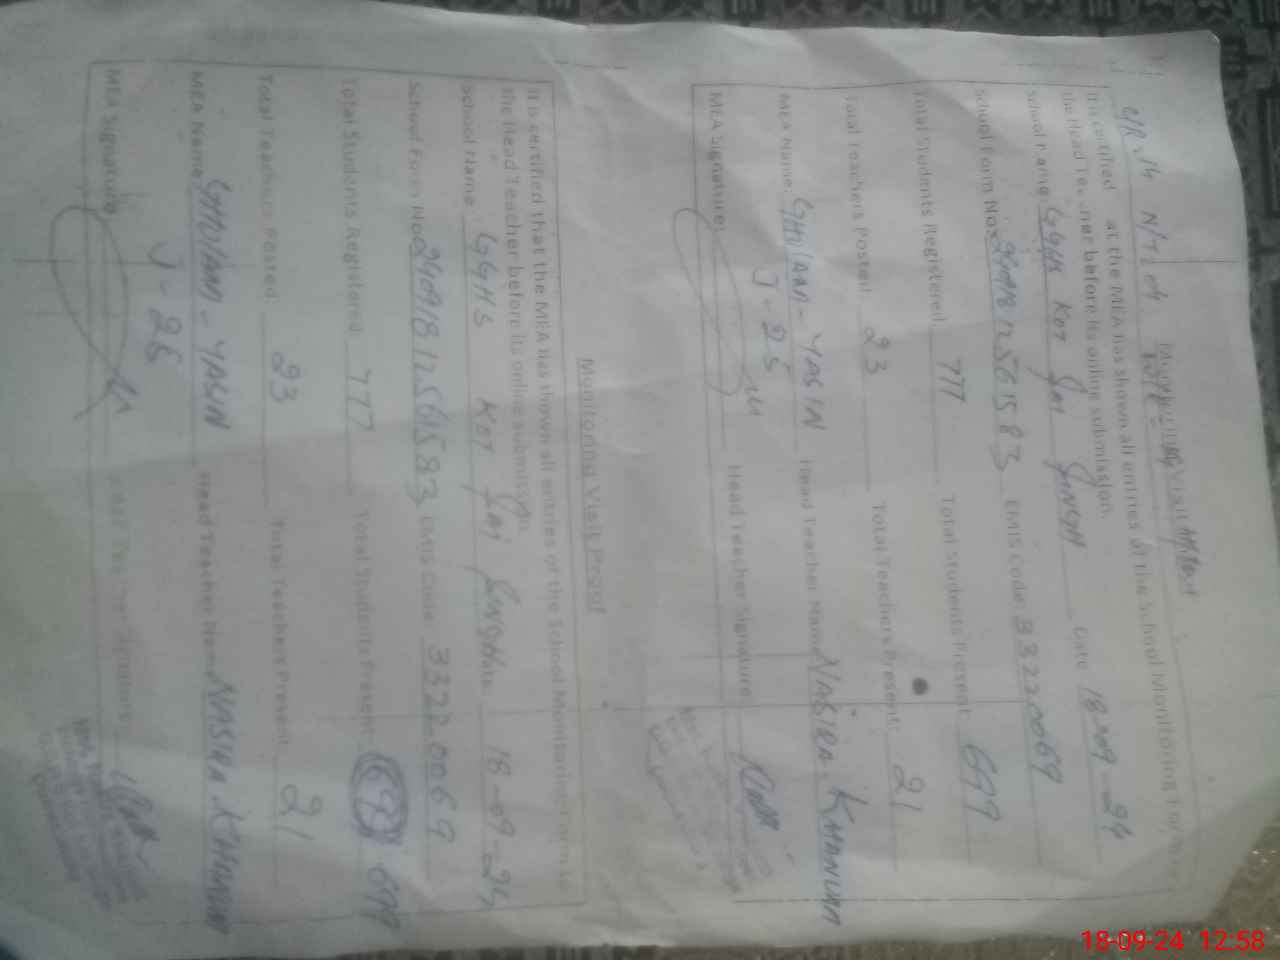 N/T 04
It is certified at the MEA has shown all entries of the School Monitoring Form to
the Head Teacher before its online submission.
School Name: GGHS KOT JAI SINGH Date 18-09-24
School Form No: 240918125615583 EMIS Code 33220069
Total Students Registered 777 Total Students Present: 699
Total Teachers Posted 23 Total Teachers Present: 21
MEA Name: GHULAM-YASIN Head Teacher Name NASIRA KHANUM
J-25
MEA Signature: Head Teacher Signature
Monitoring Visit Proof
It is certified that the MEA has shown all entries of the School Monitoring Form to
the Head Teacher before its online submission.
School Name GGHS KOT JAI SINGH Date 18-09-24
School Form No: 240918125615583 EMIS Code 33220069
Total Students Registered: 777 Total Students Present 699
Total Teachers Posted: 23 Total Teachers Present: 21
MEA Name: GHULAM-YASIN Head Teacher Name NASIRA KHANUM
J-25
MEA Signature Head Teacher Signature
18-09-24 12:58